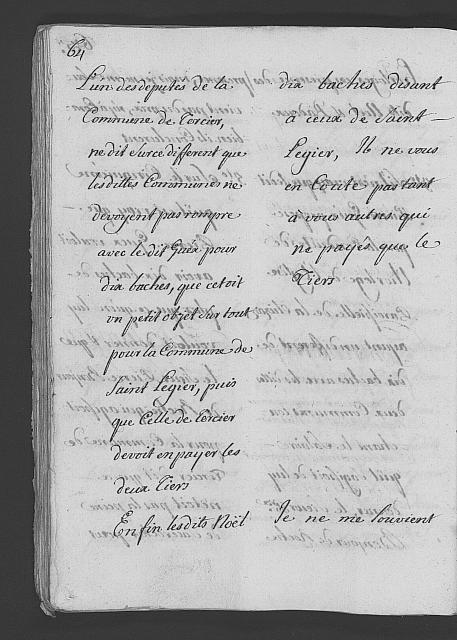 64
L'un des deputés de la
Commune de Corsier,
ne dit sur ce different que
lesdittes Communes ne
devoyent pas rompre
avec le dit Guex pour
dix baches, que cetoit
un petit objet sur tout
pour la Commune de
Saint Legier, puis
que Celle de Corsier
devoit en payer les
deux Tiers
Enfin lesdits Noël
dix baches disant
a ceux de Saint
Legier, Il ne vous
en Coute pas tant
à vous autres qui
ne payés que le
Tiers
Je ne me souvient